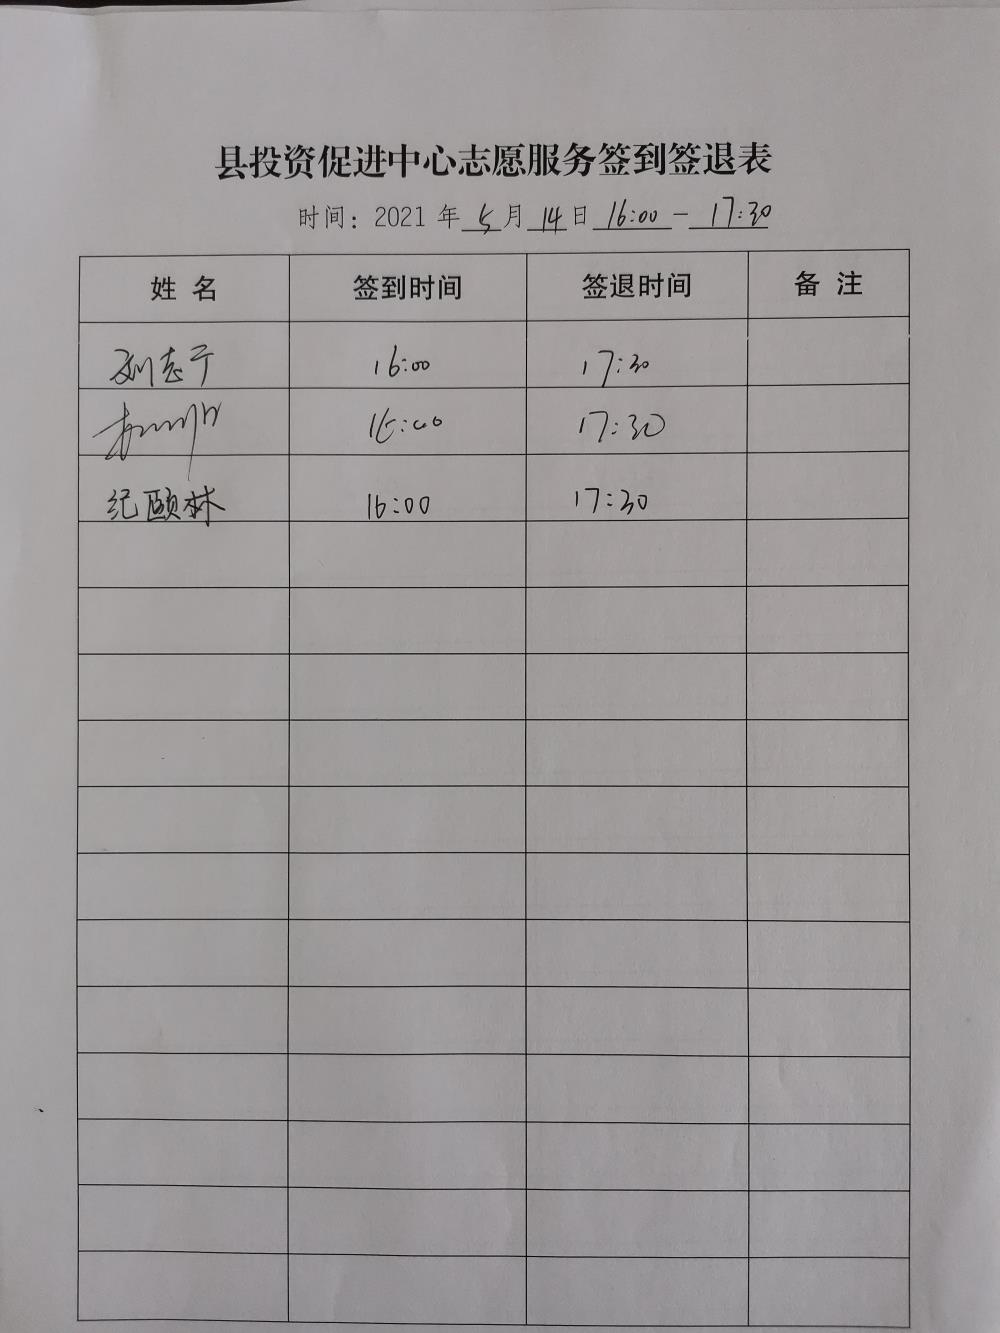 县投资促进中心志愿服务签到签退表
时间：2021 年 5 月 14 日 16:00 - 17:30
姓 名 签到时间 签退时间 备 注
刘志宁 16:00 17:30
16:00 17:30
纪颐林 16:00 17:30